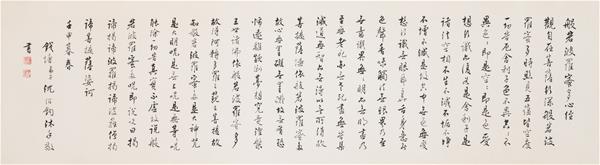 般若波羅蜜多心經
觀自在菩薩行深般若波
羅蜜多時照見五蘊皆空度
一切苦厄舍利子色不異空空不
異色色即是空空即是色受
想行識亦復如是舍利子是
諸法空相不生不滅不垢不淨
不增不減是故空中無色無受
想行識無眼耳鼻舌身意無
色聲香味觸法無眼界乃至
無意識界無無明亦無無明盡乃
至無老死亦無老死盡無苦集
滅道無智亦無得以無所得故
菩提薩埵依般若波羅蜜多
故心無罣礙無罣礙故無有恐
怖遠離顛倒夢想究竟涅槃
三世諸佛依般若波羅蜜多
故得阿耨多羅三藐三菩提故
知般若波羅蜜多是大神咒
是大明咒是無上咒是無等等咒
能除一切苦真實不虛故說般
若波羅蜜多咒即說咒曰揭
諦揭諦波羅揭諦波羅僧揭
諦菩提薩婆訶
壬申暮春
錢塘弟子沈伯鈞沐手敬
書